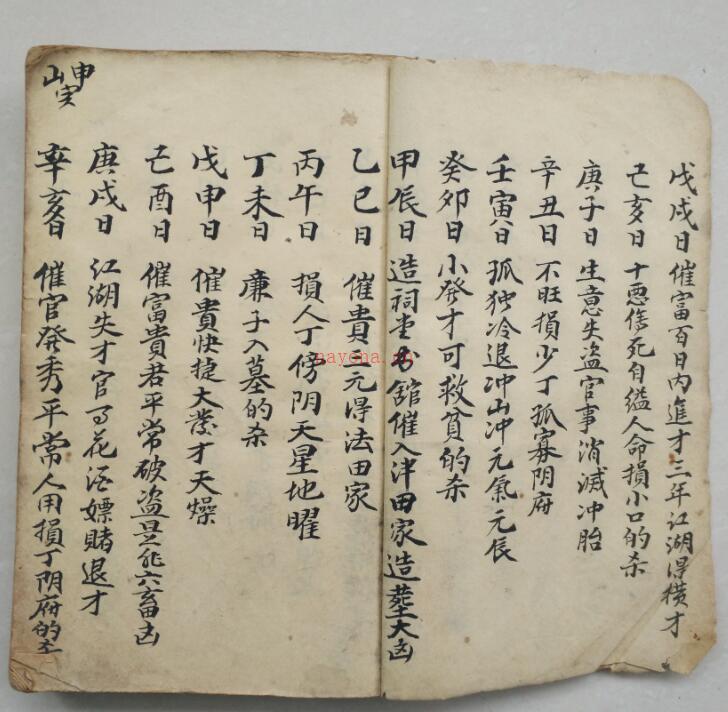 戊戌日 催富百日内進才三年江湖得横才
己亥日 十悪傷死自缢人命損小口的杀
庚子日 生意失盗官事消滅冲胎
辛丑日 不旺損少丁孤寡阴府
壬寅日 孤独冷退冲山冲元氣元辰
癸卯日 小発才可救貧的杀
甲辰日 造祠堂书舘催入泮田家造塟大凶
乙巳日 催貴三元得法田家
丙午日 損人丁傍阴天星地曜
丁未日 廉子入墓的杀
戊申日 催貴快捷大發才天燥
己酉日 催富貴君平常破盗是非六畜凶
庚戌日 江湖失才官司花酒嫖賭退才
辛亥日 催官発秀平常人用損丁阴府的
申山寅
nayona.cn